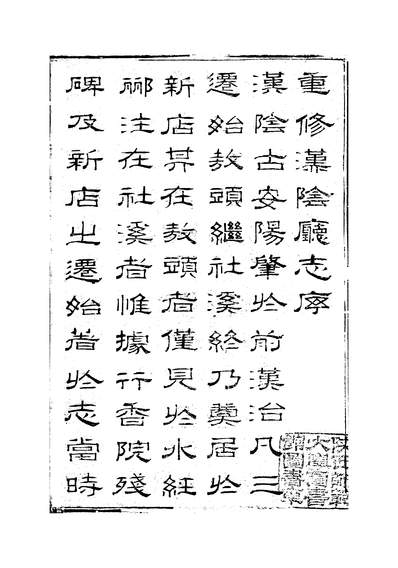 重修漢陰廳志序
漢陰古安陽肇於前漢治凡三
遷始敖頭繼社溪終乃奠居於
新店其在敖頭者僅見於水經
酈注在社溪者惟據行香院殘
碑及新店之遷始著於志當時